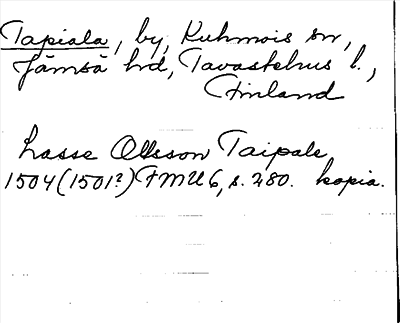 Tapiala, by, Kuhmois sn,
Jämsä hrd, Tavastehus l.,
Finland
Lasse Olsson Taipale
1504 (1501?) FMU 6, s. 280. kopia.